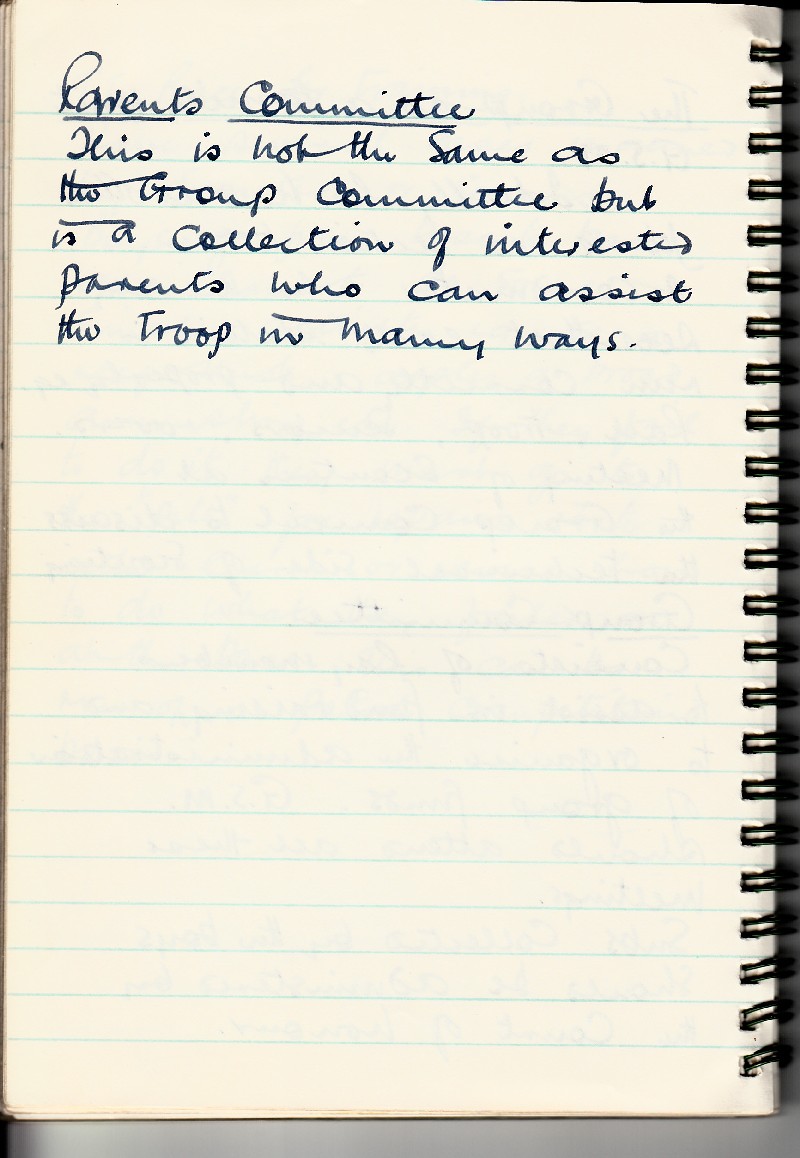 Parents Committee
This is not the Same as
the Group Committee but
is a Collection of interested
parents who can assist
the Troop in many ways.